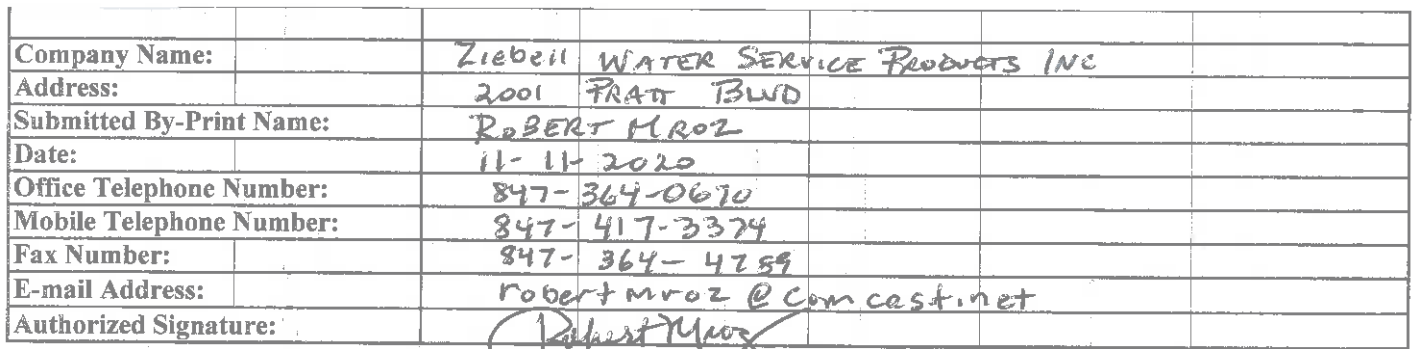 Company Name: Ziebell WATER SERVICE PRODUCTS INC
Address: 2001 PRATT BLVD
Submitted By-Print Name: ROBERT MROZ
Date: 11-11-2020
Office Telephone Number: 847-364-0670
Mobile Telephone Number: 847-417-3374
Fax Number: 847-364-4789
E-mail Address: robertmroz@comcast.net
Authorized Signature: Robert Mroz